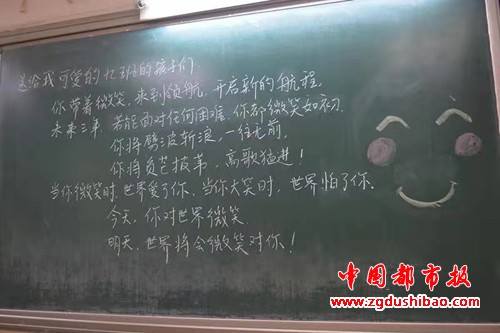 送给我可爱的12班的孩子们
你带着微笑,来到领航,开启新的航程,
未来三年,若能面对任何困难,你都微笑如初.
你将劈波斩浪,一往无前,
你将负芒披苇,高歌猛进!
当你微笑时,世界爱了你,当你大笑时,世界怕了你.
今天,你对世界微笑
明天,世界将会微笑对你!
中国都市报
www.zgdushibao.com